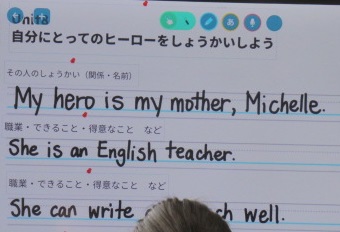 Unit8
自分にとってのヒーローをしょうかいしよう
その人のしょうかい（関係・名前）
My hero is my mother, Michelle.
職業・できること・得意なこと など
She is an English teacher.
職業・できること・得意なこと など
She can write well.